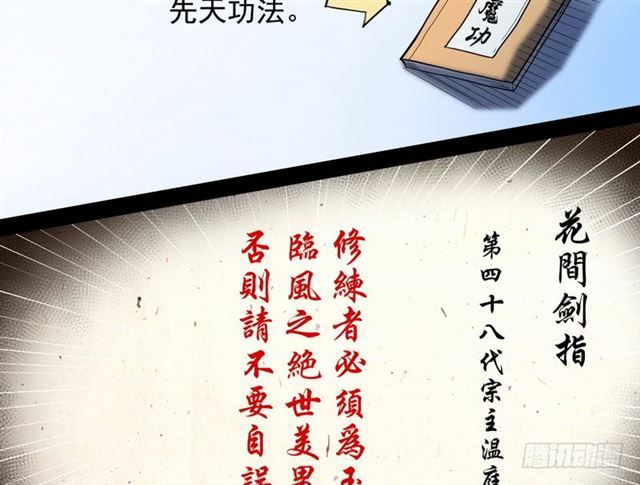 先天功法。
魔功
花間劍指
第四十八代宗主溫庭
修練者必須為玉
臨風之絕世美男
否則請不要自誤
腾讯动漫